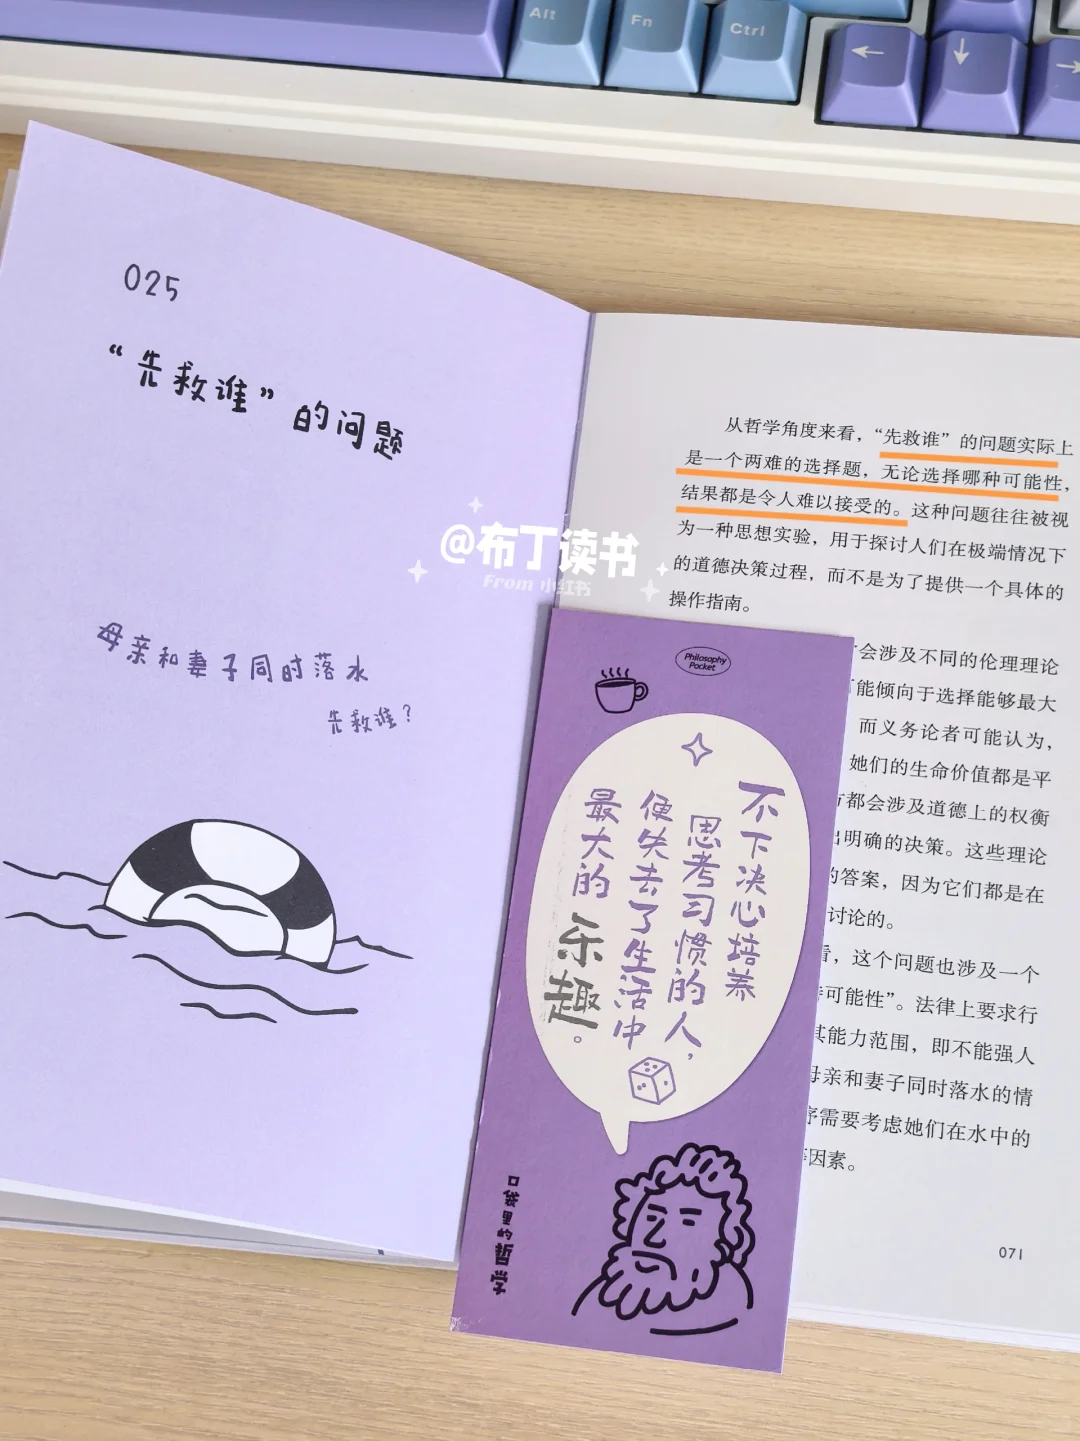 Alt
Fn
Ctrl
←
↓
→
025
“先救谁”的问题
母亲和妻子同时落水
先救谁？
@布丁读书
From 小红书
从哲学角度来看，“先救谁”的问题实际上
是一个两难的选择题，无论选择哪种可能性，
结果都是令人难以接受的。这种问题往往被视
为一种思想实验，用于探讨人们在极端情况下
的道德决策过程，而不是为了提供一个具体的
操作指南。
会涉及不同的伦理理论
可能倾向于选择能够最大
而义务论者可能认为，
她们的生命价值都是平
都会涉及道德上的权衡
出明确的决策。这些理论
的答案，因为它们都是在
讨论的。
看，这个问题也涉及一个
待可能性”。法律上要求行
其能力范围，即不能强人
母亲和妻子同时落水的情
序需要考虑她们在水中的
等因素。
071
Philosophy
Pocket
不下决心培养
思考习惯的人，
便失去了生活中
最大的
乐趣。
口袋里的哲学